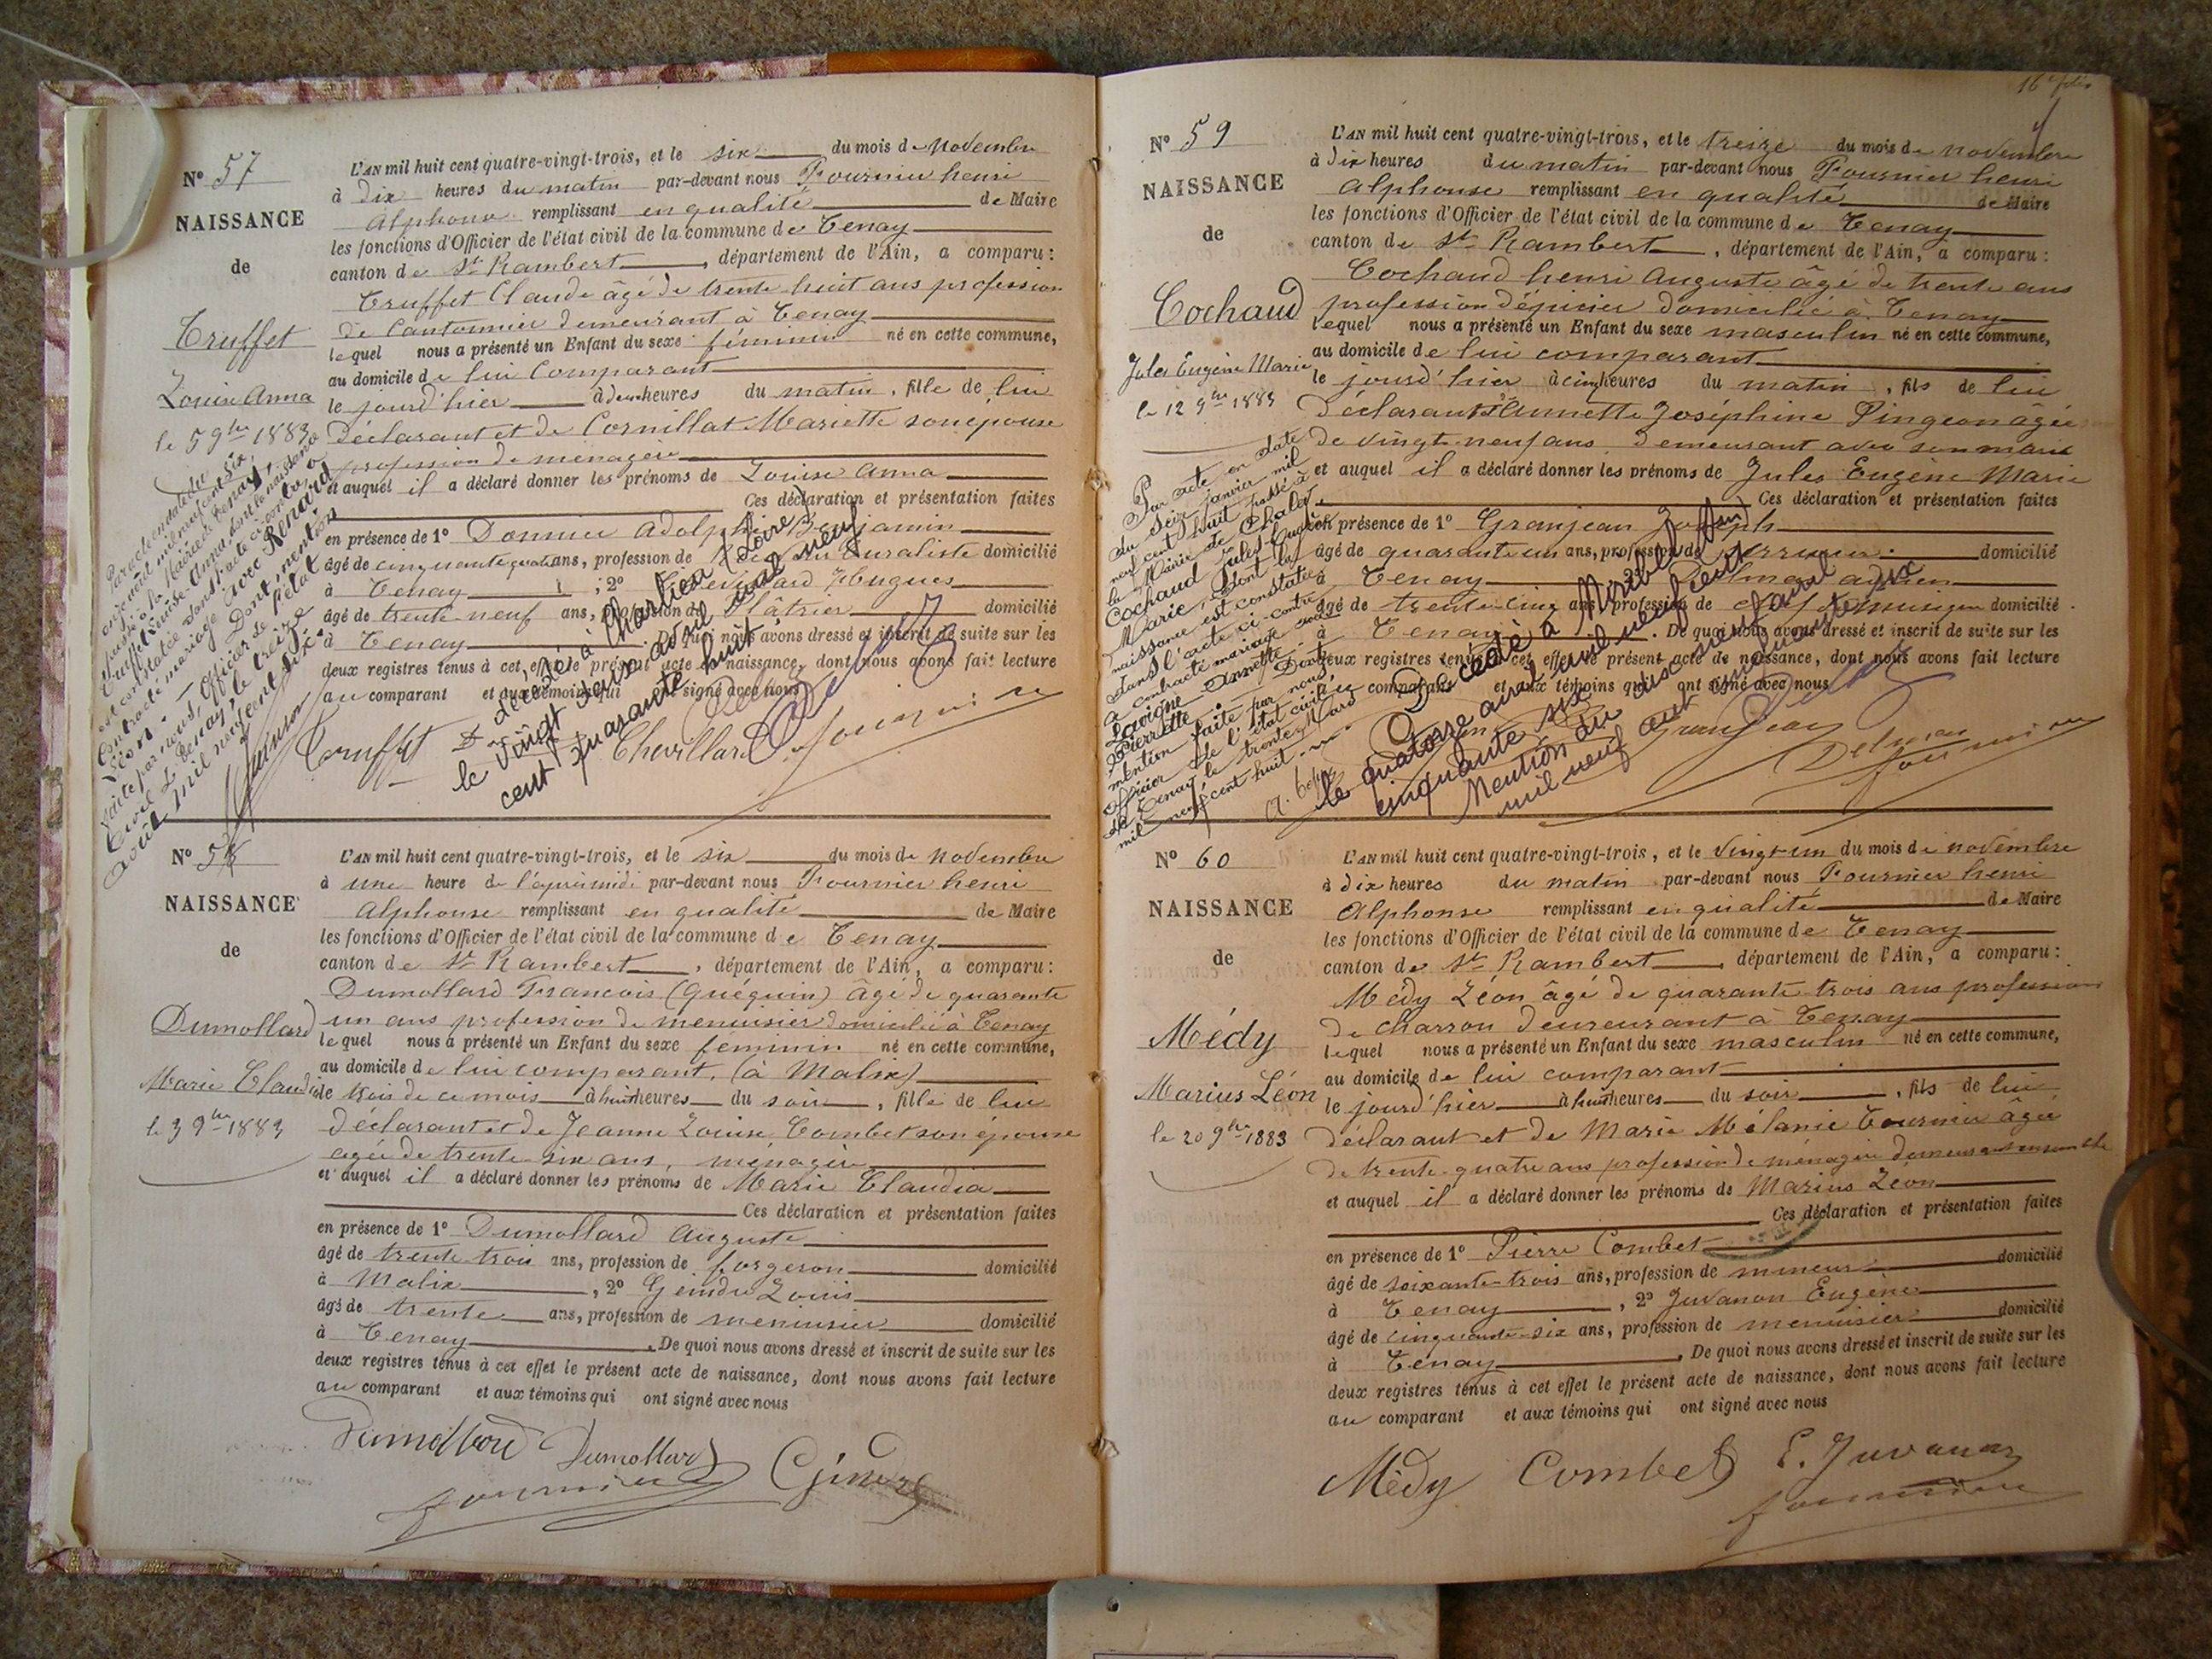 N° 57
NAISSANCE
de
Truffet
Louise Anna
le 5 9bre 1883
L'AN mil huit cent quatre-vingt-trois, et le six du mois de novembre
à dix heures du matin par-devant nous Fournier henri
Alphonse remplissant en qualité de Maire
les fonctions d'Officier de l'état civil de la commune de Tenay
canton de St Rambert, département de l'Ain, a comparu:
Truffet Claude âgé de trente huit ans profession
de Cantonnier demeurant à Tenay
lequel nous a présenté un Enfant du sexe féminin né en cette commune,
au domicile de lui Comparant
le jourd'hier à deux heures du matin, fille de lui
déclarant et de Cornillat Mariette son épouse
profession de ménagère
et auquel il a déclaré donner les prénoms de Louise Anna
Ces déclaration et présentation faites
en présence de 1° Donnier Adolphe Benjamin
âgé de cinquante quatre ans, profession de buraliste domicilié
à Tenay ; 2° Chevillard Hugues
âgé de trente neuf ans, profession de Plâtrier domicilié
à Tenay. De quoi nous avons dressé et inscrit de suite sur les
deux registres tenus à cet effet le présent acte de naissance, dont nous avons fait lecture
au comparant et aux témoins qui ont signé avec nous
Truffet Chevillard fournier
Par acte en date du six
août mil neuf cent six,
passé à la Mairie de Tenay,
Truffet Louise-Anna, dont la naissance
est constatée dans l'acte ci-contre, a
contracté mariage avec Renard
Léon. Dont mention
faite par nous, Officier de l'état
civil de Tenay, le treize
août mil neuf cent six.
décédée à Charlieu (Loire)
le vingt seize avril mil neuf
cent quarante huit
N° 58
NAISSANCE
de
Dumollard
Marie Claudia
le 3 9bre 1883
L'AN mil huit cent quatre-vingt-trois, et le six du mois de novembre
à une heure de l'après midi par-devant nous Fournier henri
Alphonse remplissant en qualité de Maire
les fonctions d'Officier de l'état civil de la commune de Tenay
canton de St Rambert, département de l'Ain, a comparu:
Dumollard Francois (Quéquin) âgé de quarante
un ans profession de menuisier domicilié à Tenay
lequel nous a présenté un Enfant du sexe feminin né en cette commune,
au domicile de lui comparant, (à Malix)
le trois de ce mois à huit heures du soir, fille de lui
déclarant et de Jeanne Louise Combet son épouse
agée de trente six ans, ménagère
et auquel il a déclaré donner les prénoms de Marie Claudia
Ces déclaration et présentation faites
en présence de 1° Dumollard Auguste
âgé de trente trois ans, profession de forgeron domicilié
à Malix, 2° Geindre Louis
âgé de trente ans, profession de menuisier domicilié
à Tenay. De quoi nous avons dressé et inscrit de suite sur les
deux registres tenus à cet effet le présent acte de naissance, dont nous avons fait lecture
au comparant et aux témoins qui ont signé avec nous
Dumollard Dumollard
fournier Gindre
16e folio
N° 59
NAISSANCE
de
Cochaud
Jules Eugène Marie
le 12 9bre 1883
L'AN mil huit cent quatre-vingt-trois, et le treize du mois de novembre
à dix heures du matin par-devant nous Fournier henri
Alphonse remplissant en qualité de Maire
les fonctions d'Officier de l'état civil de la commune de Tenay
canton de St Rambert, département de l'Ain, a comparu:
Cochaud henri Auguste âgé de trente ans
profession d'épicier domicilié à Tenay
lequel nous a présenté un Enfant du sexe masculin né en cette commune,
au domicile de lui comparant
le jourd'hier à cinq heures du matin, fils de lui
déclarant et d'Annette Joséphine Pingeon âgée
de vingt-neuf ans demeurant avec son mari
et auquel il a déclaré donner les prénoms de Jules Eugène Marie
Ces déclaration et présentation faites
en présence de 1° Granjean Joseph
âgé de quarante un ans, profession de domicilié
à Tenay Delmas
âgé de trente-cinq ans profession de domicilié
à Tenay. De quoi nous avons dressé et inscrit de suite sur les
deux registres tenus à cet effet le présent acte de naissance, dont nous avons fait lecture
au comparant et aux témoins qui ont signé avec nous
Granjean
Delmas
fournier
Par acte en date
du seize janvier mil
neuf cent huit passé à
la Mairie de Chaley
Cochaud Jules-Eugène
Marie, dont la
naissance est constatée
dans l'acte ci-contre
a contracté mariage avec
Lavigne Annette
Pierrette. Dont
mention faite par nous,
Officier de l'état civil
de Tenay le trente Mars
mil neuf cent huit
Décédé à Miribel (Ain)
le quatorze avril mil neuf cent
cinquante six.
Mention du dix neuf avril
mil neuf cent cinquante six
N° 60
NAISSANCE
de
Médy
Marius Léon
le 20 9bre 1883
L'AN mil huit cent quatre-vingt-trois, et le vingt-un du mois de novembre
à dix heures du matin par-devant nous Fournier henri
Alphonse remplissant en qualité de Maire
les fonctions d'Officier de l'état civil de la commune de Tenay
canton de St Rambert, département de l'Ain, a comparu:
Médy Léon âgé de quarante trois ans profession
de charron demeurant à Tenay
lequel nous a présenté un Enfant du sexe masculin né en cette commune,
au domicile de lui comparant
le jourd'hier à huit heures du soir, fils de lui
déclarant et de Marie Mélanie Tournier âgée
de trente-quatre ans profession de ménagère demeurant ensemble
et auquel il a déclaré donner les prénoms de Marius Léon
Ces déclaration et présentation faites
en présence de 1° Pierre Combet
âgé de soixante-trois ans, profession de mineur domicilié
à Tenay, 2° Juvanon Eugène
âgé de cinquante-six ans, profession de menuisier domicilié
à Tenay. De quoi nous avons dressé et inscrit de suite sur les
deux registres tenus à cet effet le présent acte de naissance, dont nous avons fait lecture
au comparant et aux témoins qui ont signé avec nous
Médy Combet E. Juvanon
fournier